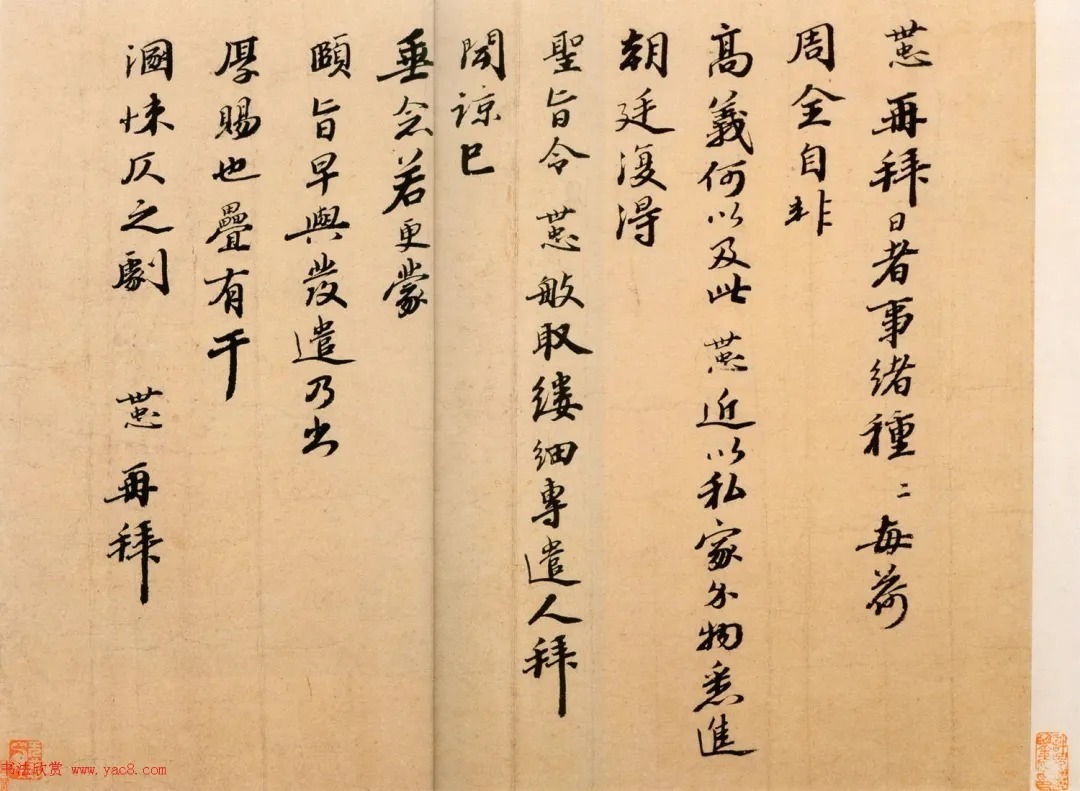 世忠再拜日者事緒種二每荷
周全自非
高義何以及此世忠近以私家分物悉進
朝廷復得
聖旨令世忠敏取縷細專遣人拜
聞諒已
垂念若更蒙
頤旨早與發遣乃出
厚賜也疊有干
溷悚仄之劇 世忠再拜
书法欣赏 www.yac8.com